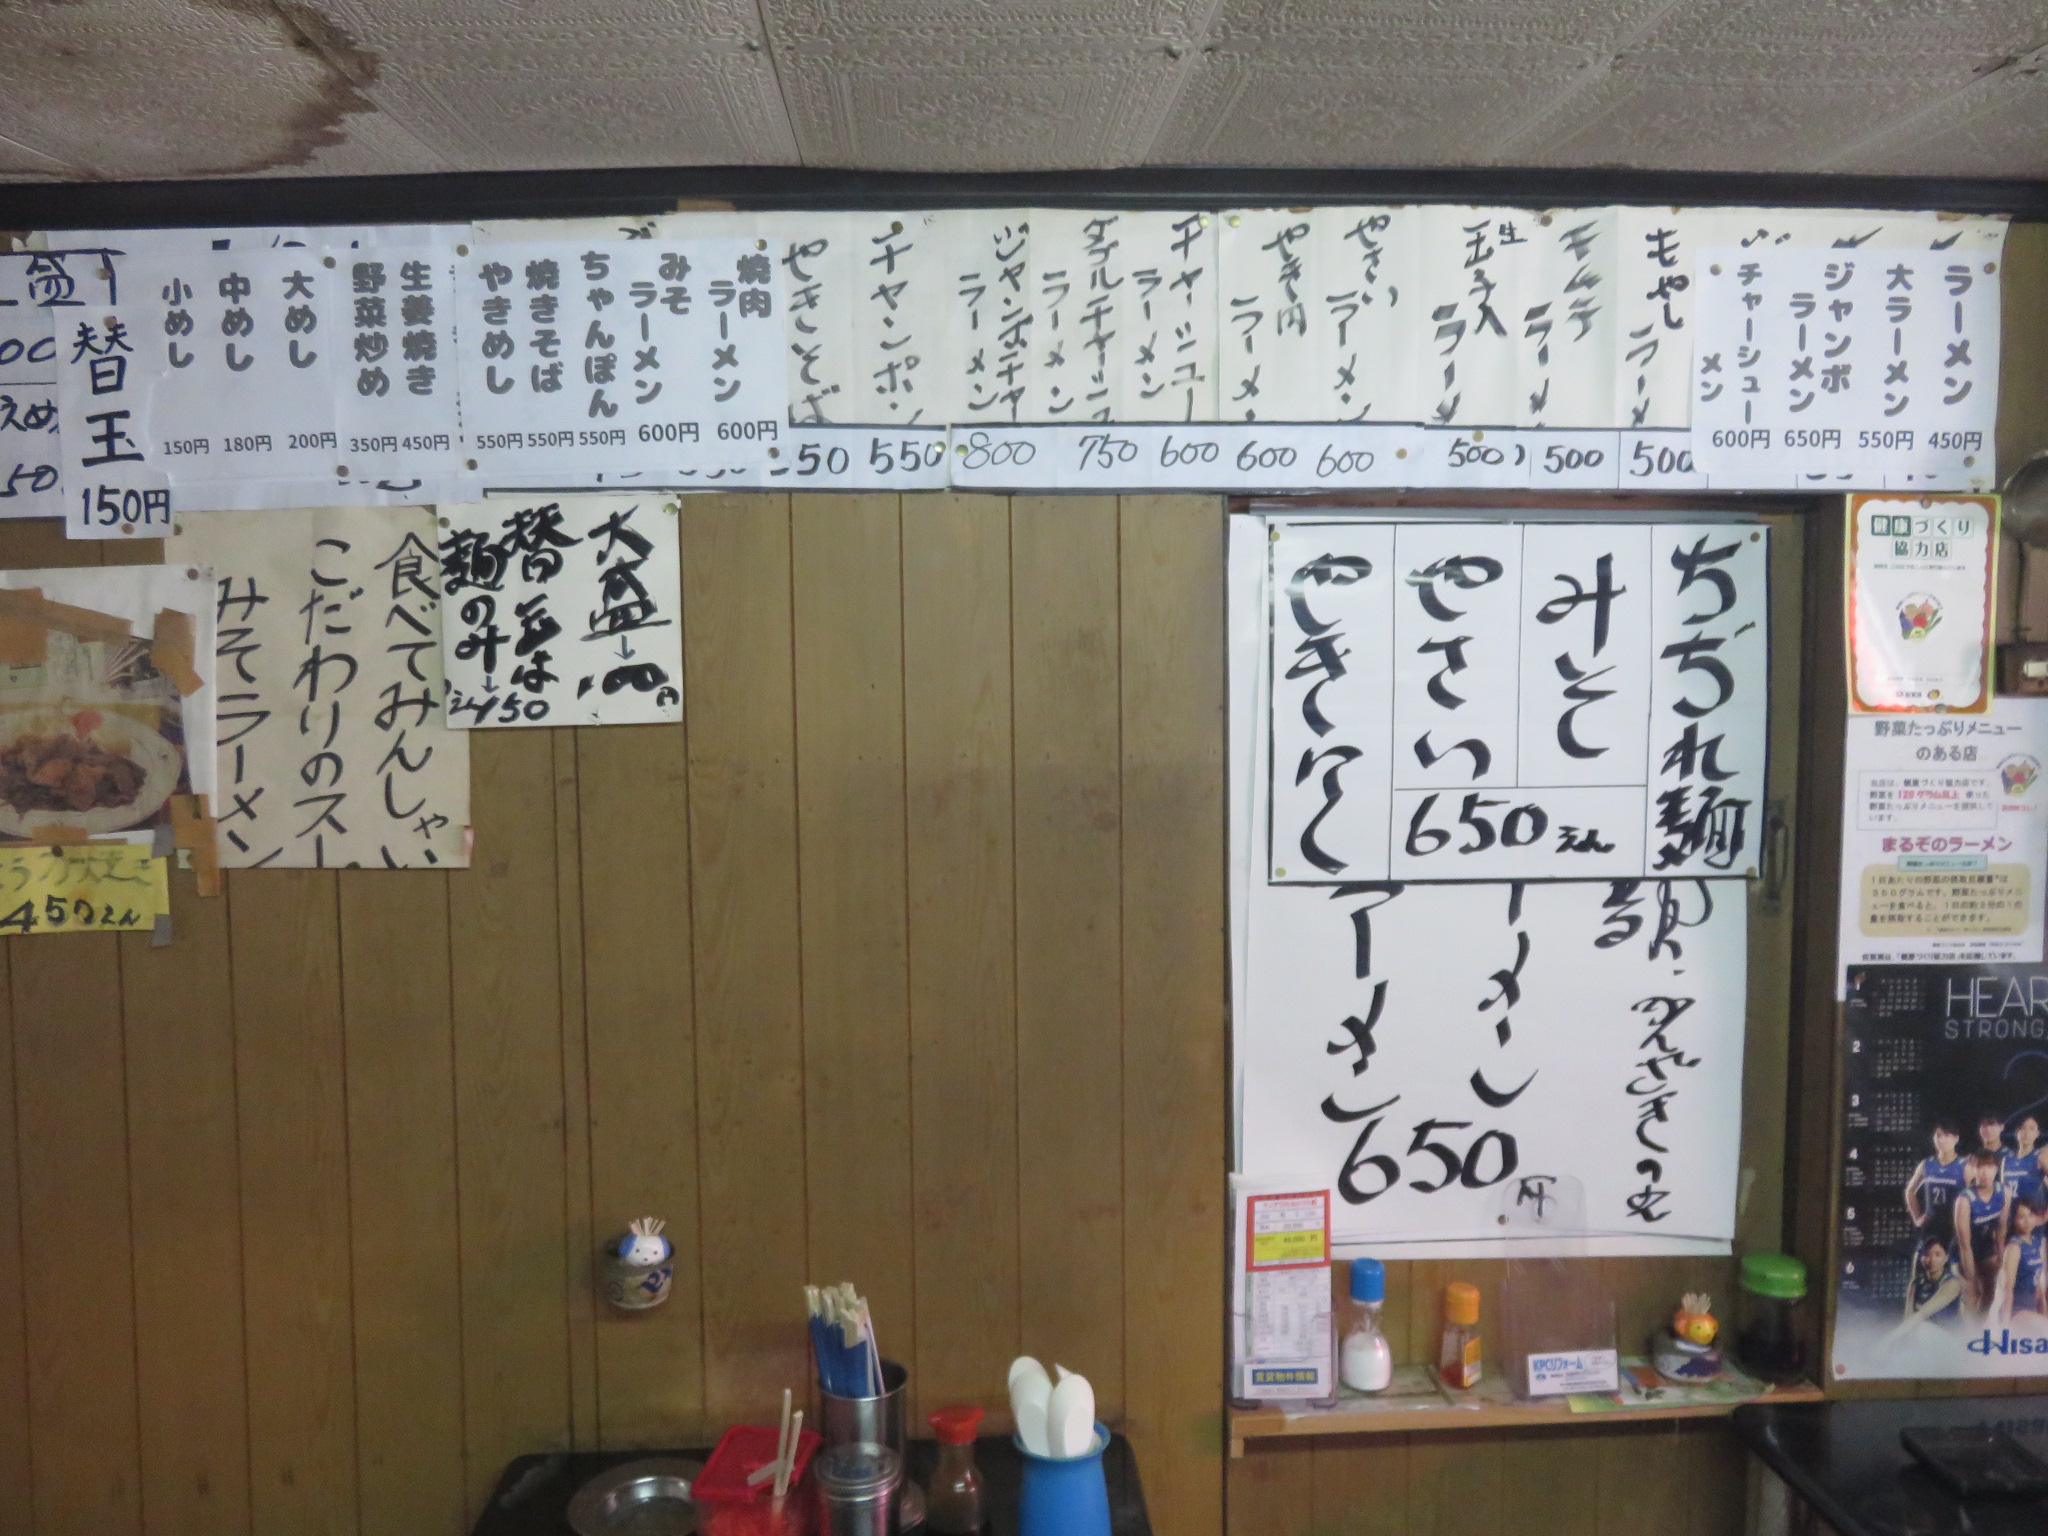 ラーメン 450円
大ラーメン 550円
ジャンボラーメン 650円
チャーシューメン 600円
もやしラーメ 500
キムチラーメ 500
生玉子入ラーメ 500
やさいラーメン 600
やき肉ラーメ 600
チャーシューラーメン 600
ダブルチャーシュラーメン 750
ジャンボチャーラーメン 800
チャンポン 550
やきそば 550
焼肉ラーメン 600円
みそラーメン 600円
ちゃんぽん 550円
焼きそば 550円
やきめし 550円
生姜焼き 450円
野菜炒め 350円
大めし 200円
中めし 180円
小めし 150円
替玉 150円
大盛→100円
替玉は
麺のみ→150
食べてみんしゃい
こだわりのスー
みそラーメン
450えん
ちぢれ麺
みそ
やさい
やきにく
650えん
ーメン
ラーメン
650円
健康づくり
協力店
野菜たっぷりメニュー
のある店
当店は、健康づくり協力店です。
野菜を120グラム以上 使った
野菜たっぷりメニューを提供して
います。
まるぞのラーメン
HEAR
STRONG
1
2
3
4
5
6
21
Hisa
賃貸物件情報
KPCリフォーム